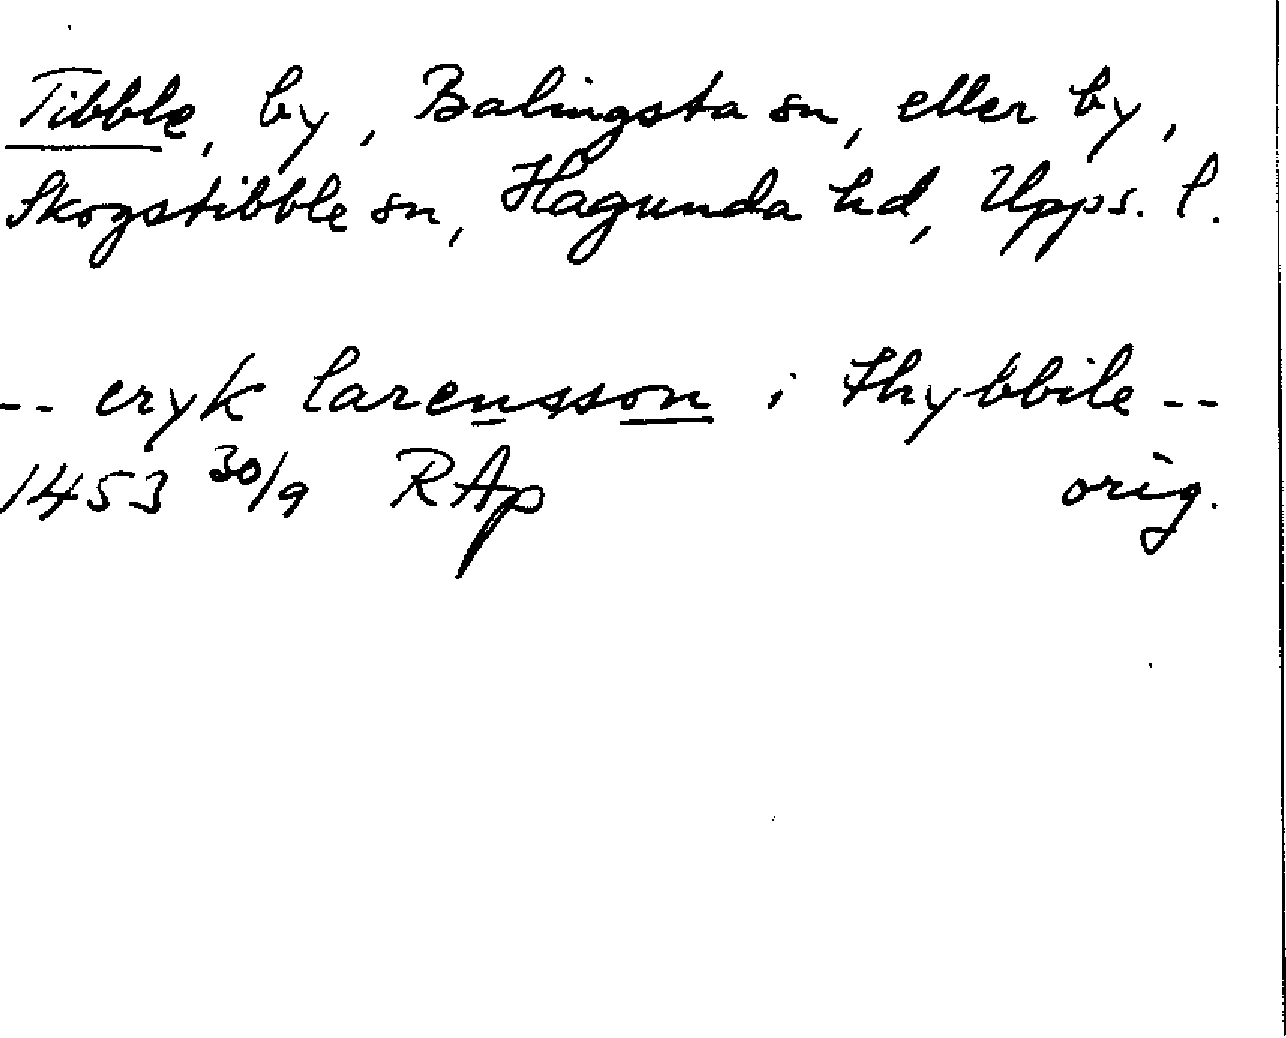 Tibble, by, Balingsta sn, eller by,
Skogstibble sn, Hagunda hd, Upps. l.
-- eryk larensson i thybbile --
1453 30/9 RAp orig.